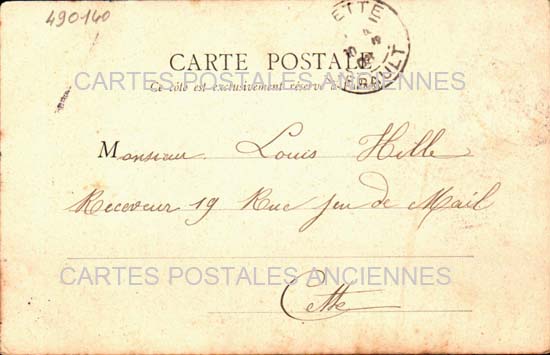 490140
ETTE
HÉRAULT
CARTE POSTALE
CARTES POSTALES ANCIENNES
Ce côté est exclusivement réservé à l'adresse
Monsieur Louis Hille
Receveur 19 Rue Jeu de Mail
CARTES POSTALES ANCIENNES
Cette